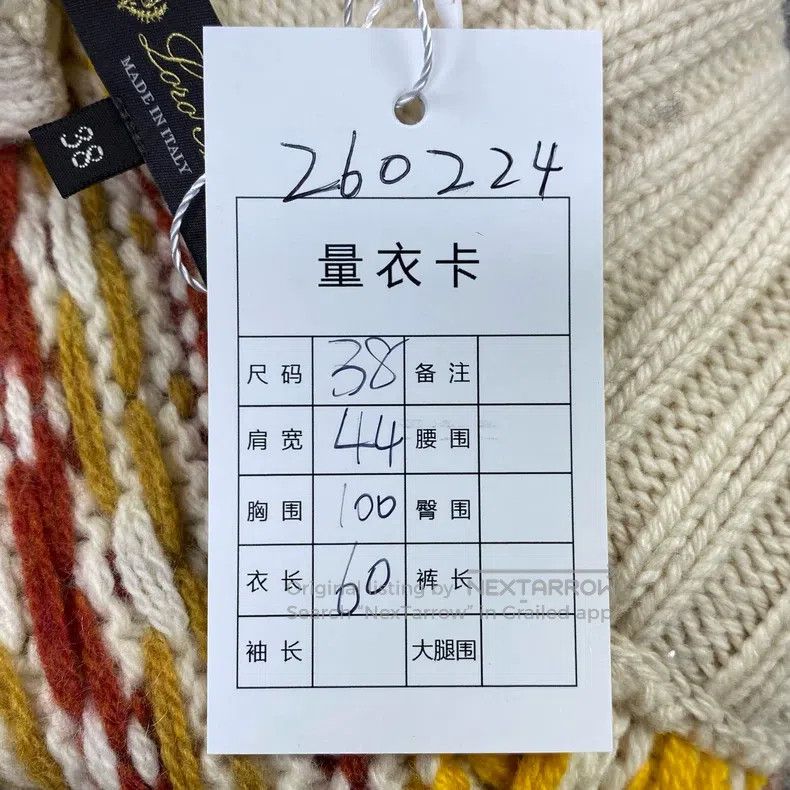 Loro
MADE IN ITALY
38
260224
量衣卡
尺码 38 备注
肩宽 44 腰围
胸围 100 臀围
衣长 60 裤长
袖长 大腿围
Original listing by NEXTARROW
Search "NexTarrow" in Grailed app